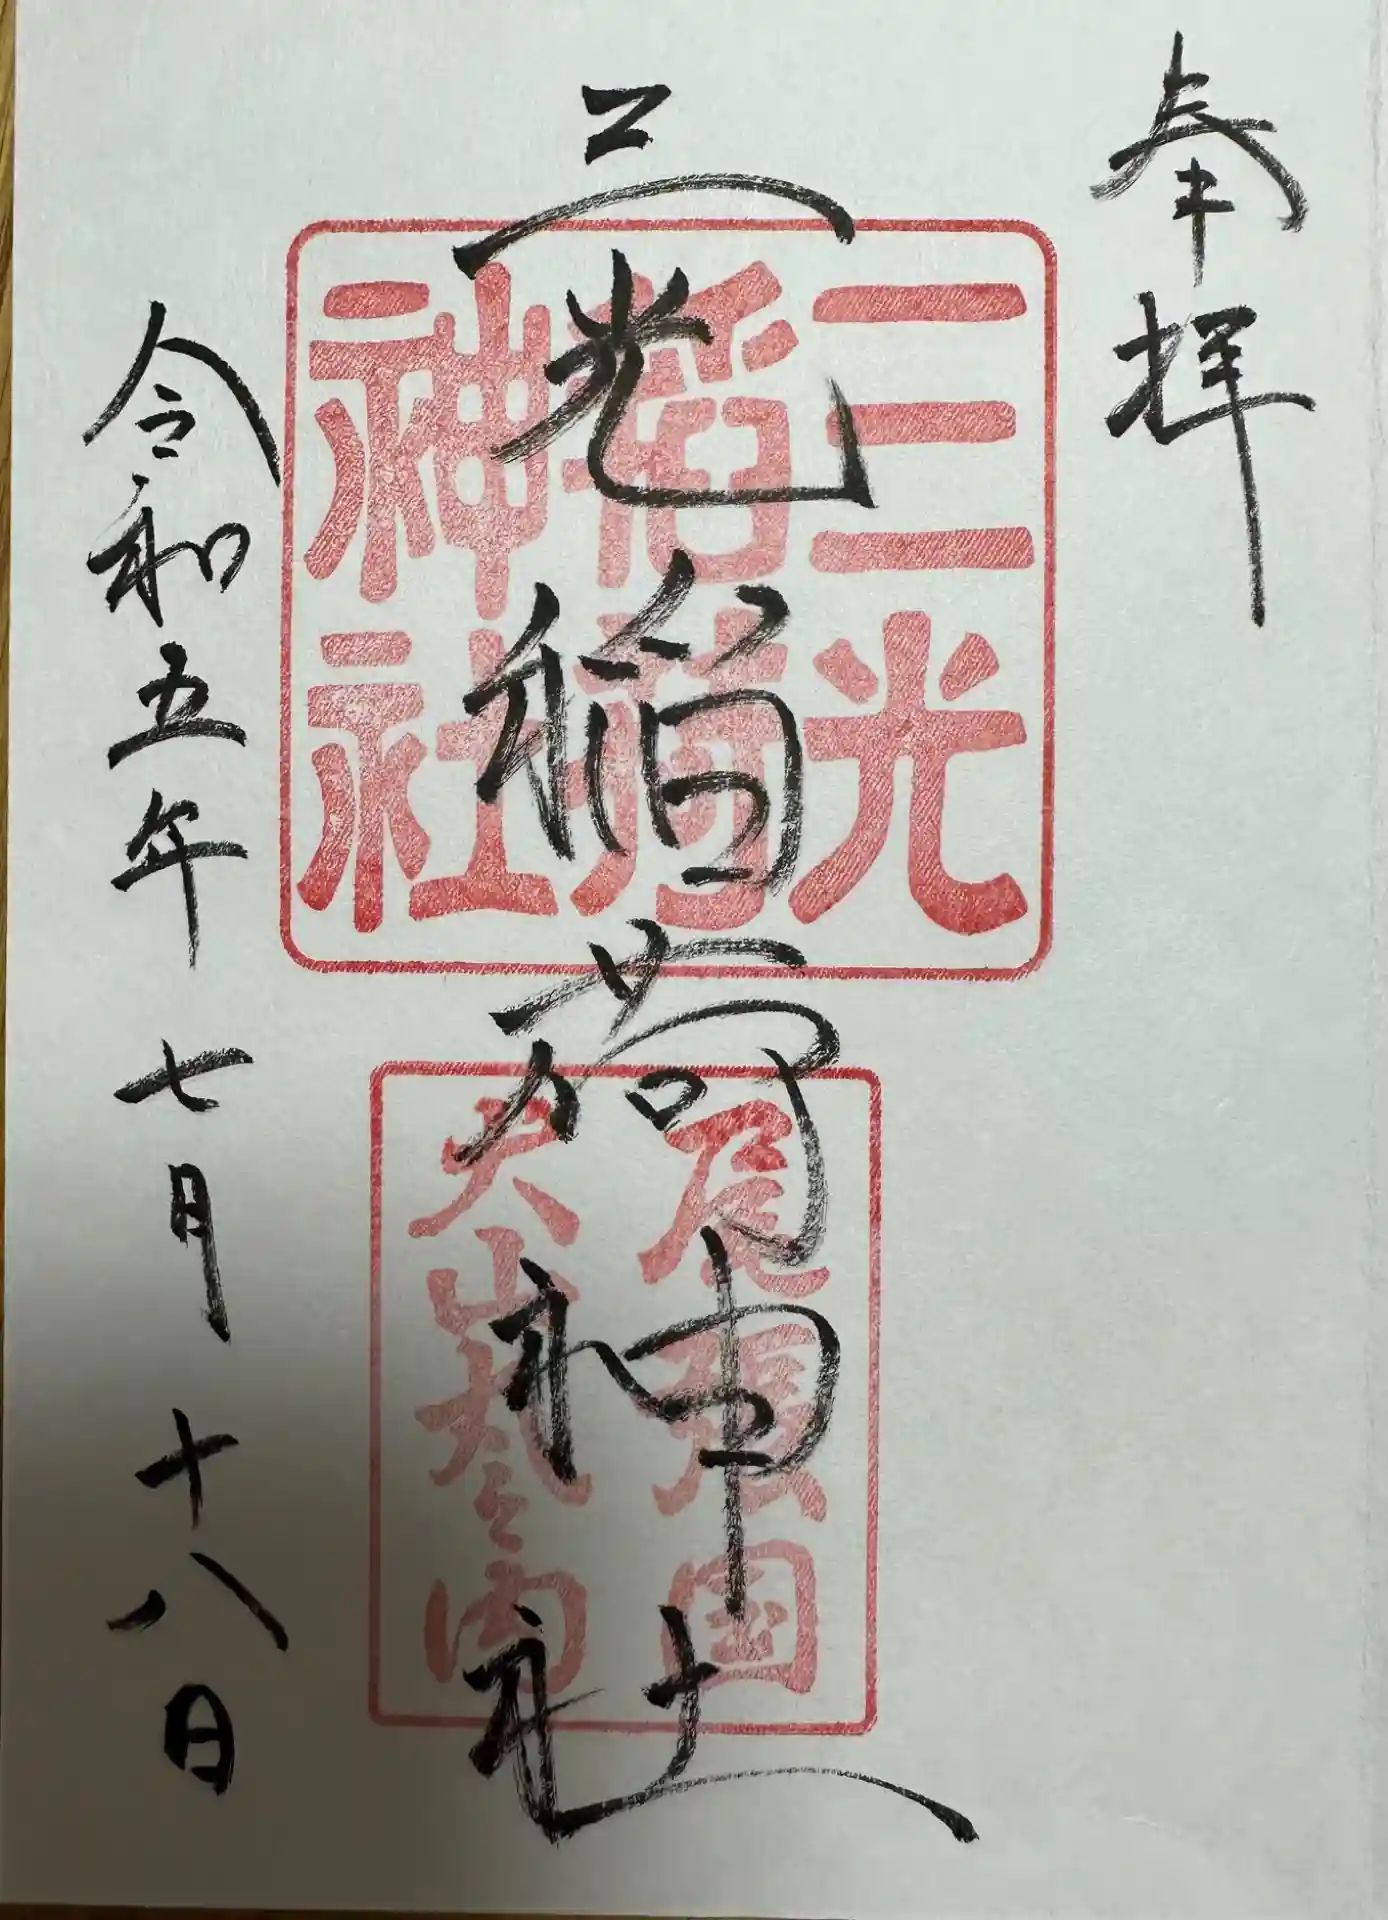 奉拝
三光稲荷神社
令和五年七月十八日
三光
稲荷
神社
尾張国
犬山城之内